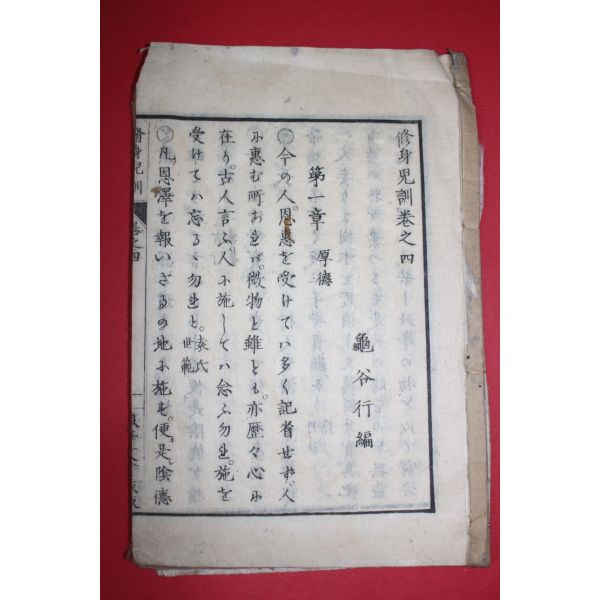 修身児訓巻之四
龜谷行編
第一章 厚德
今の人。恩惠を受けてハ多く記省せず。人
に惠む所あれバ。微物と雖とも。亦歴々心に
在り。古人言ふ人に施してハ念ふ勿れ。施を
受けてハ忘るゝ勿れと。袁氏世範
凡恩澤を報いざるの地に施を。便是陰德
脩身児訓 巻之四